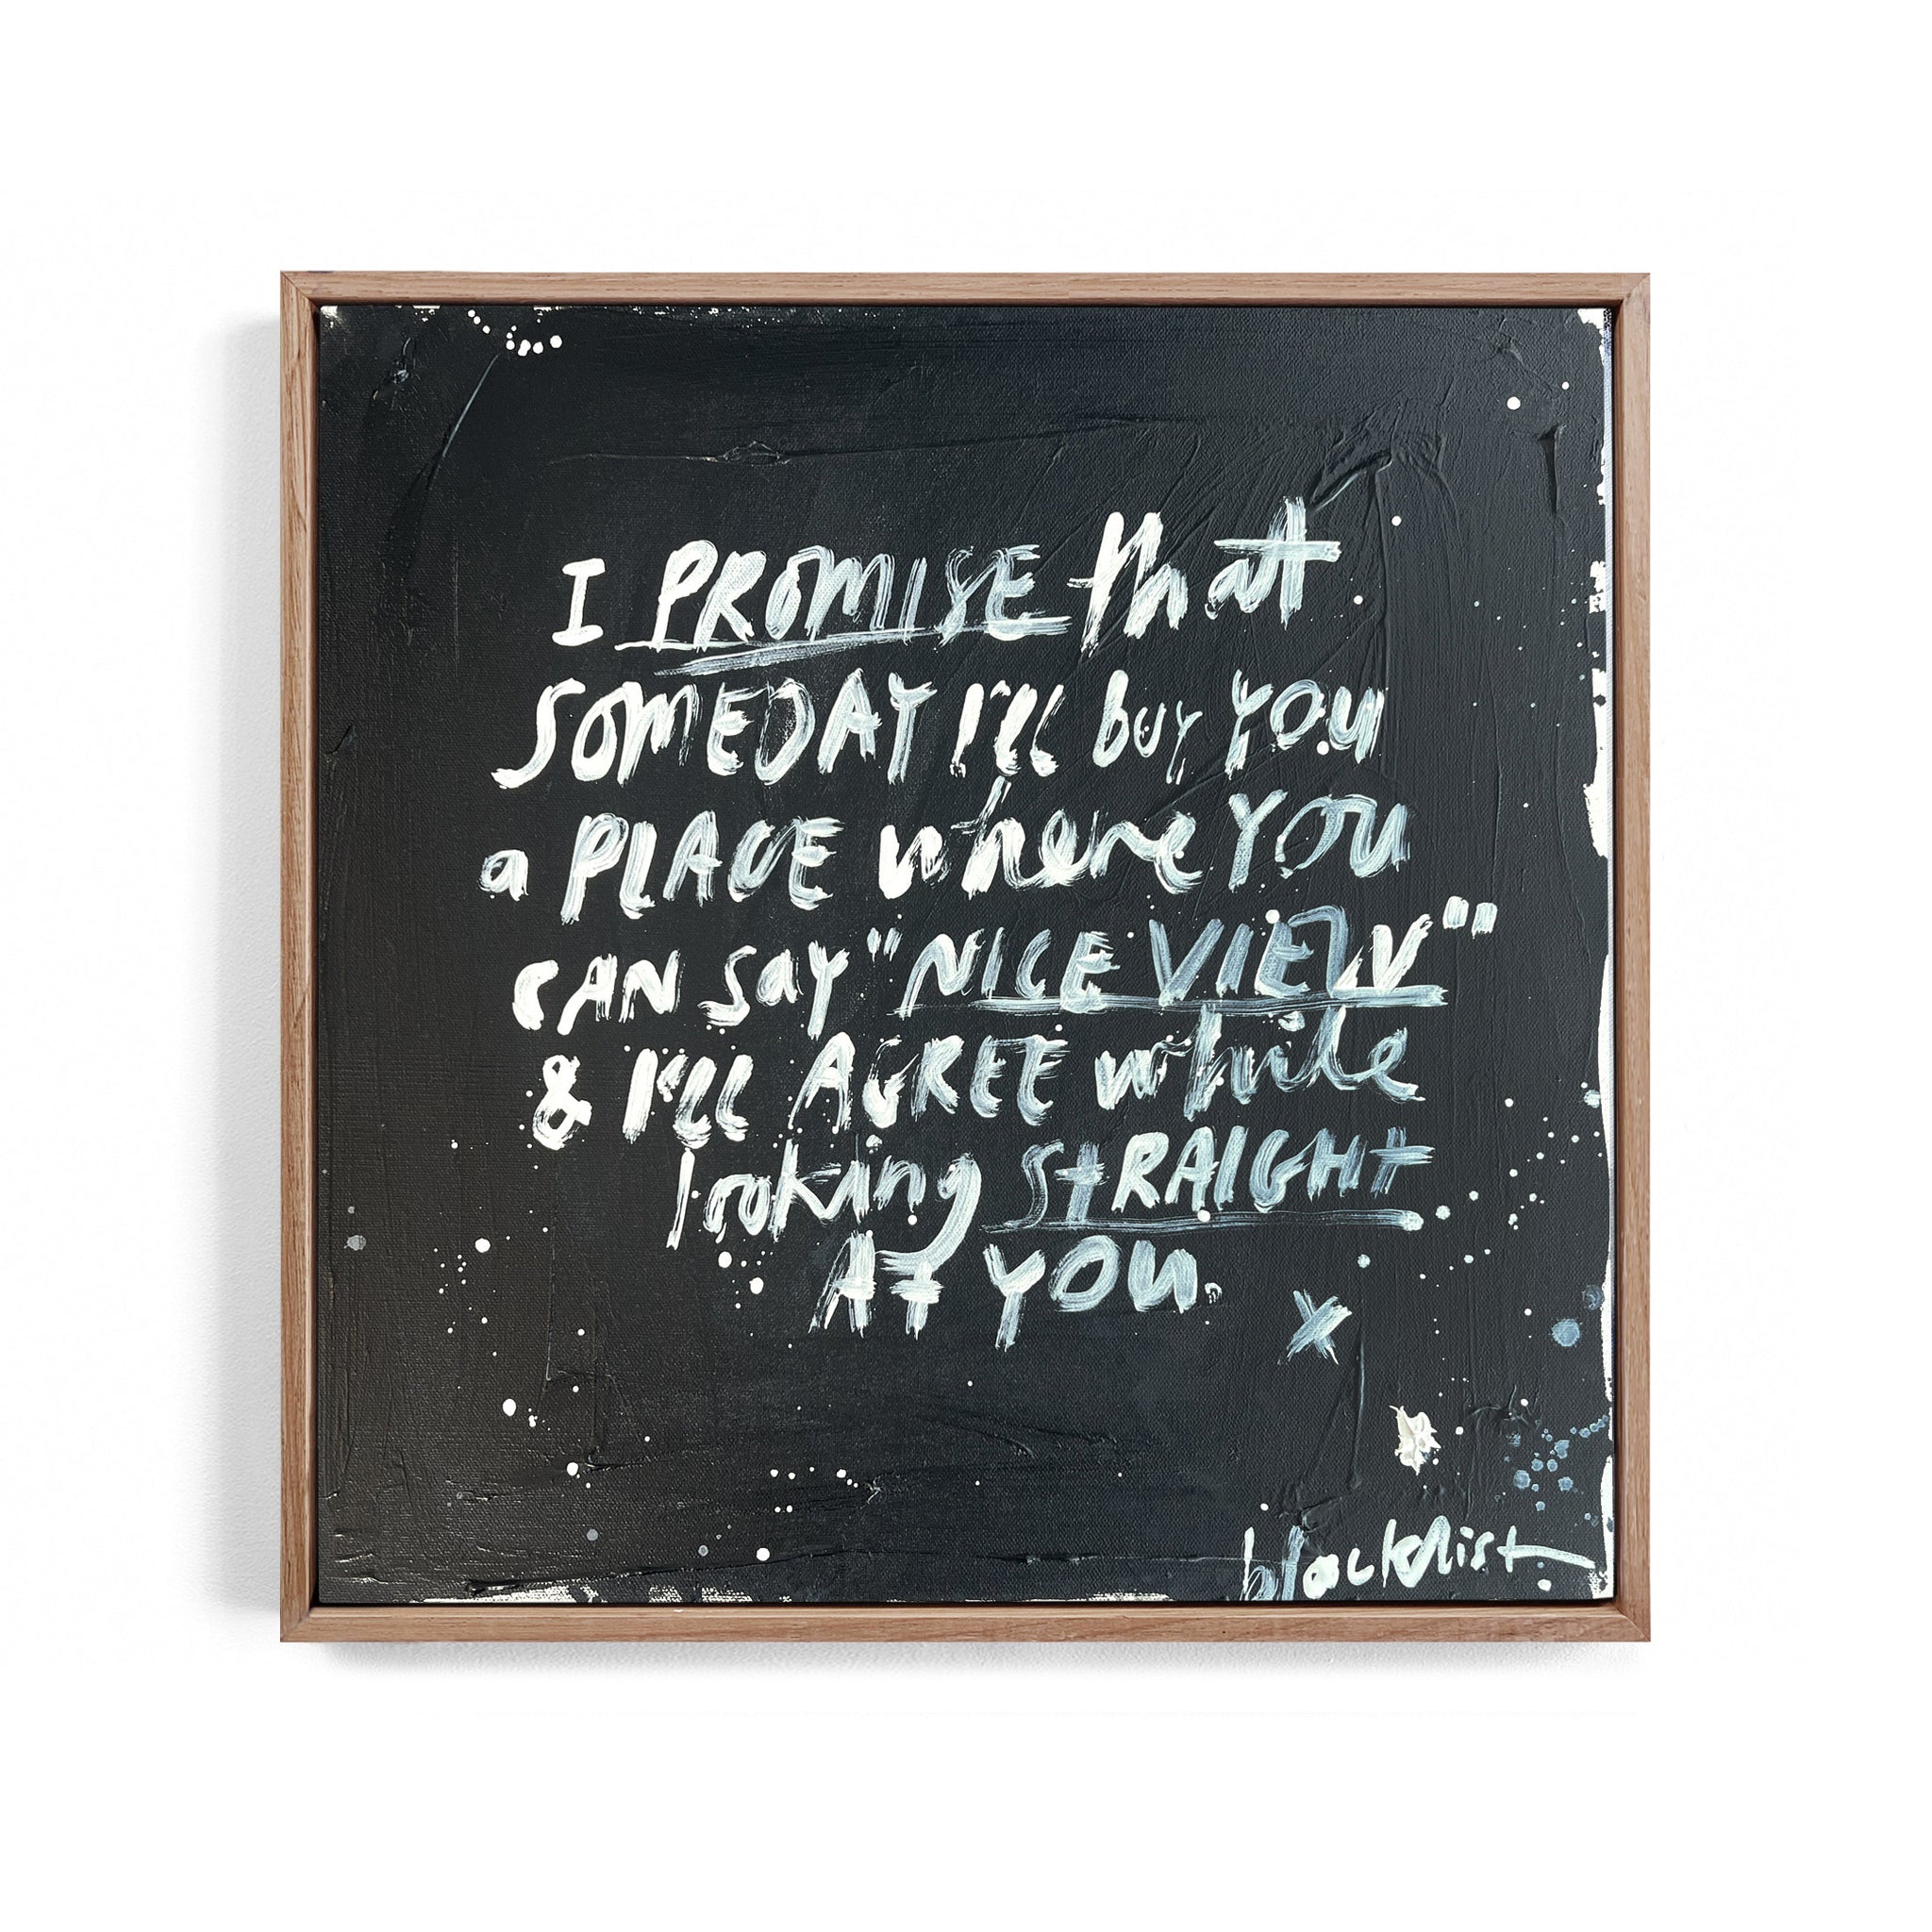 I PROMISE that
SOMEDAY I'll buy YOU
a PLACE where YOU
CAN Say "NICE VIEW"
& I'll AGREE while
looking StRAIGHt
At YOU.
x
blacklist